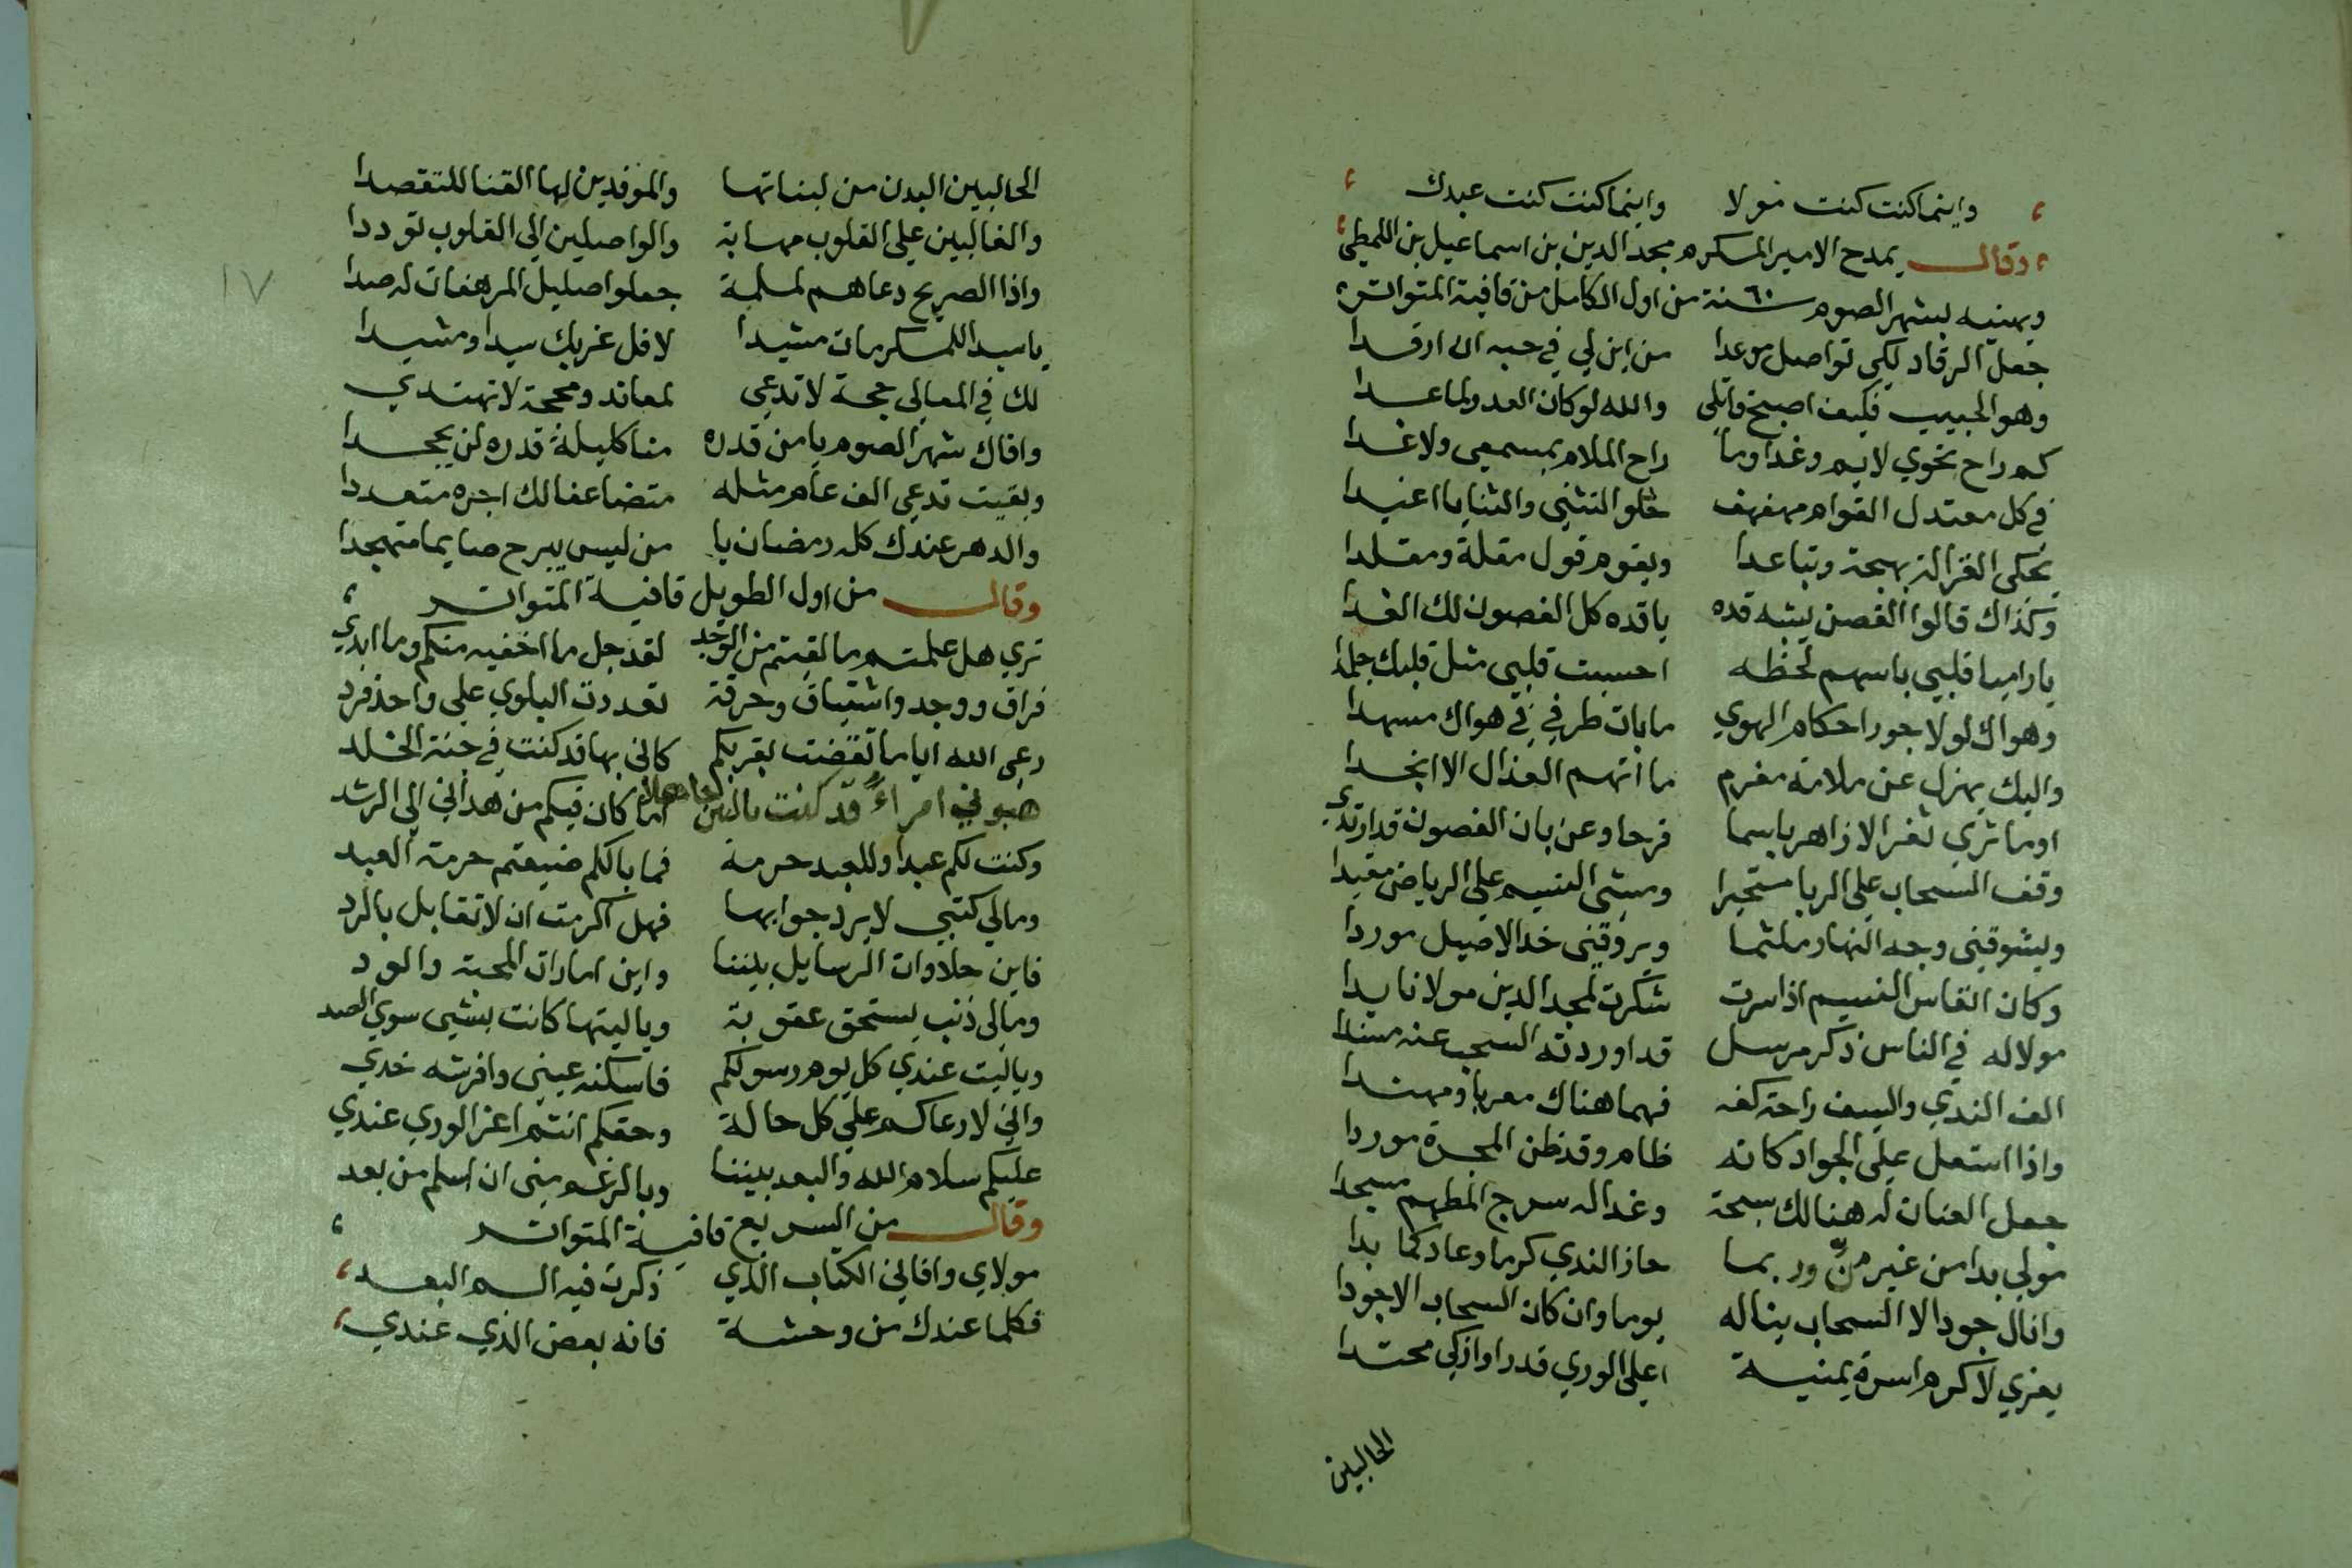 واينما كنت كنت مولا واينما كنت كنت عبدك
وقال يمدح الامير المكرم مجد الدين بن اسماعيل بن اللمطي
ويهنيه بشهر الصوم سنة من اول الكامل من قافية المتواتر
جعل الرقاد لكي تواصل موعدا من اين لي في حبه ان ارقدا
وهو الحبيب فكيف اصبح قاتلي والله لو كان العدو لما عدا
كم راح نحوي لايم وغدا وما راح الملام بمسمعي ولا غدا
في كل معتدل القوام مهفهف حلو التثني والثنايا اغيدا
يحكي الغزالة بهجة وتباعدا ويقوم قول مقلة ومقلدا
وكذاك قالوا الغصن يشبه قده يا قده كل الغصون لك الفدا
يا راميا قلبي باسهم لحظه احسبت قلبي مثل قلبك جلمدا
وهواك لولا جور احكام الهوي ما بات طرفي في هواك مسهدا
واليك يهزل عن ملامة مغرم ما اتهم العذال الا انجدا
اوما تري ثغر الازاهر باسما فرحا وعن بان الغصون قد ارتدي
وقف السحاب علي الربا متحيرا ومشي النسيم علي الرياض مقيدا
ويشوقني وجه النهار ملثما ويروقني خد الاصيل موردا
وكان انفاس النسيم اذا سرت شكرت لمجد الدين مولانا يدا
مولا له في الناس ذكر مرسل قد اوردته السحب عنه مسندا
الف الندي والسيف راحة كفه فهما هناك معربا ومهندا
واذا استعل علي الجواد كانه ظام وقد ظن المجرة موردا
جعل العنان له هنالك سبحة وغدا له سرج المطهم مسجدا
مولي بدا من غير منٍّ وربما حاز الندي كرما وعاد كما بدا
وانال جودا لا السحاب يناله يوما وان كان السحاب الاجودا
يعزي لاكرم اسرة يمنية اعلي الوري قدرا وازكي محتدا
الحالبين
١٧
الحالبين البدن من لبناتها والموفدين لها القنا للتقصدا
والغالبين علي القلوب مهابة والواصلين الي القلوب توددا
واذا الصريح دعاهم لملمة جعلوا صليل المرهفات له صدا
يا سيدا للمكرمات مشيدا لا فل غربك سيدا ومشيدا
لك في المعالي حجة لا تدعي لمعاند ومحجة لا تهتدي
وافاك شهر الصوم يا من قدره منا كليلة قدره لن يجحدا
وبقيت تدعي الف عام مثله متضاعفا لك اجره متعددا
والدهر عندك كله رمضان يا من ليس يبرح صايما متهجدا
وقال من اول الطويل قافية المتواتر
تري هل علمتم ما لقيتم من الوجد لقد جل ما اخفيه منكم وما ابدي
فراق ووجد واشتياق وحرقة تعددت البلوي علي واحد فرد
رعي الله اياما تقضت بقربكم كاني بها قد كنت في جنة الخلد
هبوني امراءً قد كنت بالبين جاهلا اما كان فيكم من هداني الي الرشد
وكنت لكم عبدا وللعبد حرمة فما بالكم ضيعتم حرمة العبد
ومالي كتبي لا يرد جوابها فهل اكرمت ان لا تقابل بالرد
فاين حلاوات الرسايل بيننا واين امارات المحبة والود
ومالي ذنب يستحق عقوبة ويا ليتها كانت بشي سوي الصد
ويا ليت عندي كل يوم رسولكم فاسكنه عيني وافرشه خدي
واني لارعاكم علي كل حالة وحقكم انتم اعز الوري عندي
عليكم سلام الله والبعد بيننا وبالرغم مني ان اسلم من بعد
وقال من السريع قافية المتواتر
مولاي وافاني الكتاب الذي ذكرت فيه الم البعد
فكلما عندك من وحشة فانه بعض الذي عندي